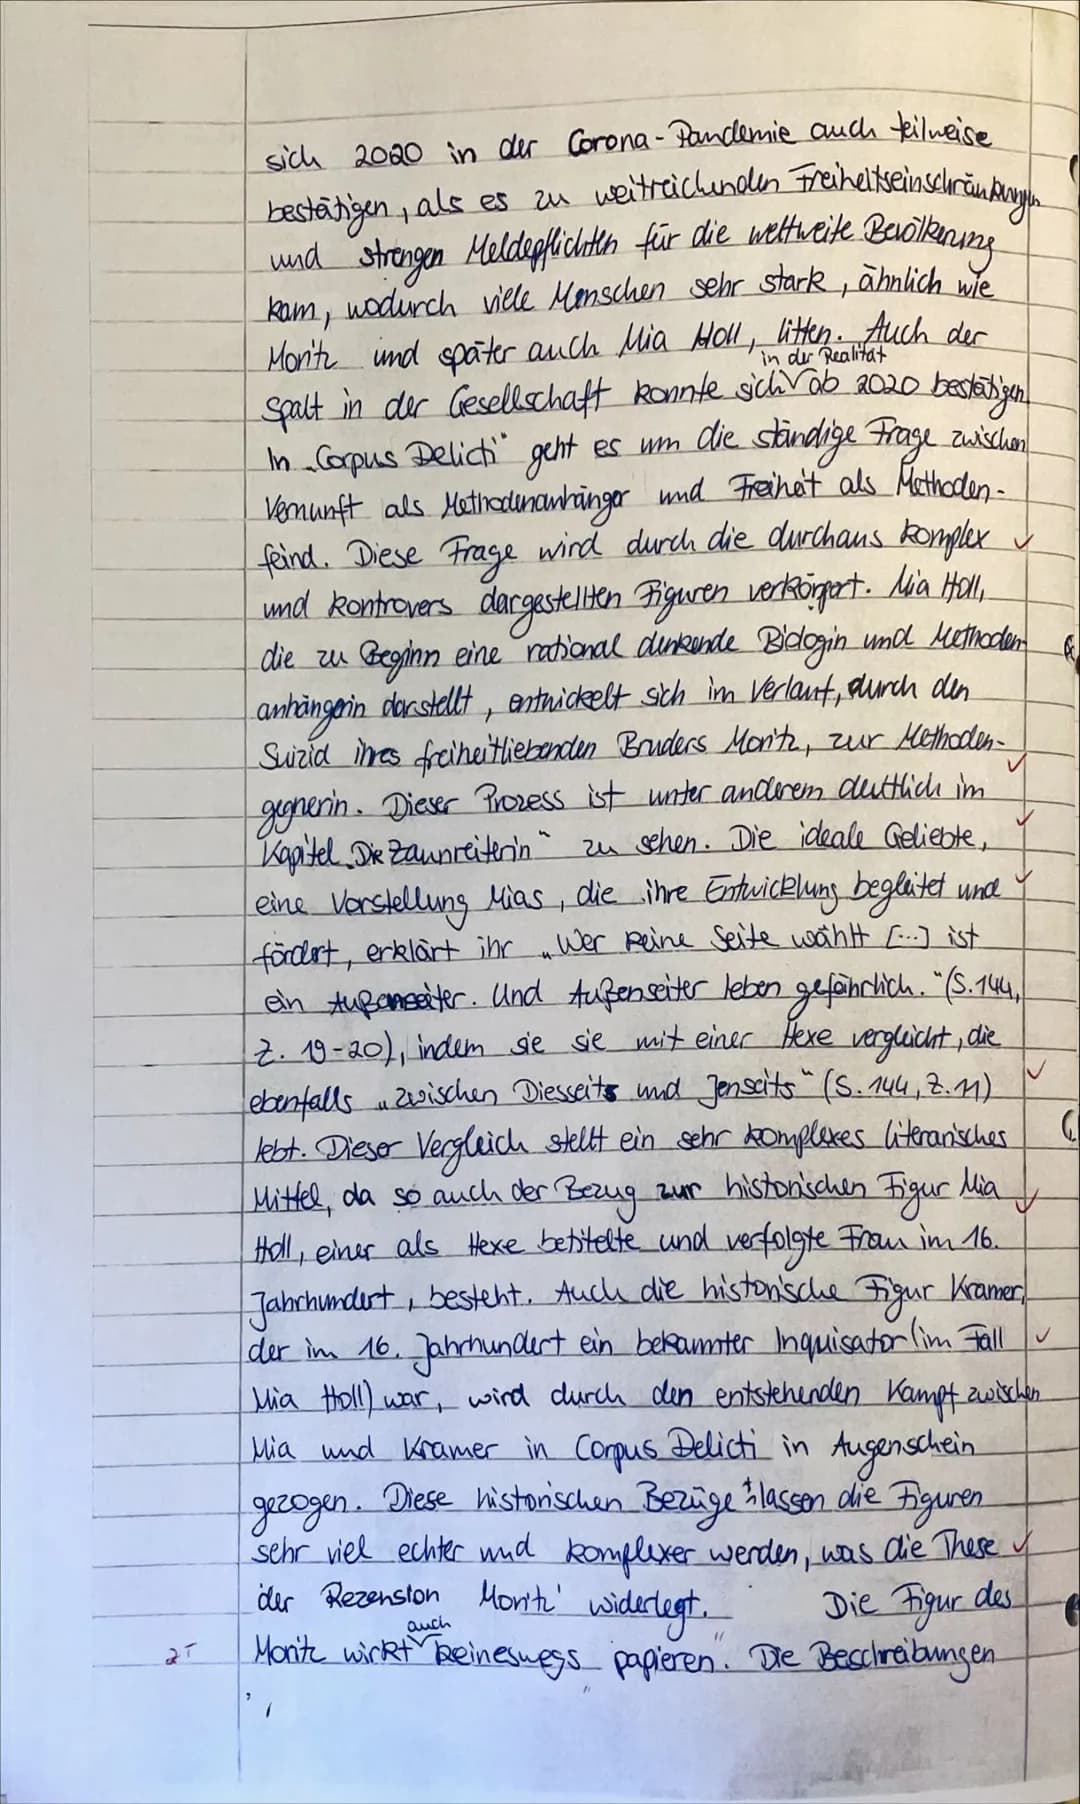 sich 2020 in der Corona-Pandemie auch teilweise
bestätigen, als es zu weitreichenden Freiheitseinschränkungen
und strengen Meldepflichten für die weltweite Bevölkerung
kam, wodurch viele Menschen sehr stark, ähnlich wie
Moritz und später auch Mia Holl, litten. Auch der
in der Realität
Spalt in der Gesellschaft konnte sich ab 2020 bestätigen
In „Corpus Delicti" geht es um die ständige Frage zwischen
Vernunft als Methodenanhänger und Freiheit als Methoden-
feind. Diese Frage wird durch die durchaus komplex
und kontrovers dargestellten Figuren verkörpert. Mia Holl,
die zu Beginn eine rational denkende Biologin und Methoden-
anhängerin darstellt, entwickelt sich im Verlauf, durch den
Suizid ihres freiheitliebenden Bruders Moritz, zur Methoden-
gegnerin. Dieser Prozess ist unter anderem deutlich im
Kapitel „Die Zaunreiterin" zu sehen. Die ideale Geliebte,
eine Vorstellung Mias, die ihre Entwicklung begleitet und
fördert, erklärt ihr „Wer keine Seite wählt [...] ist
ein Außenseiter. Und Außenseiter leben gefährlich." (S. 144,
Z. 19-20), indem sie sie mit einer Hexe vergleicht, die
ebenfalls „zwischen Diesseits und Jenseits" (S. 144, Z. 11)
lebt. Dieser Vergleich stellt ein sehr komplexes literarisches
Mittel, da so auch der Bezug zur historischen Figur Mia
Holl, einer als Hexe betitelte und verfolgte Frau im 16.
Jahrhundert, besteht. Auch die historische Figur Kramer,
der im 16. Jahrhundert ein bekannter Inquisator (im Fall
Mia Holl) war, wird durch den entstehenden Kampf zwischen
Mia und Kramer in Corpus Delicti in Augenschein
gezogen. Diese historischen Bezüge lassen die Figuren
sehr viel echter und komplexer werden, was die These
der Rezension Moritz' widerlegt. Die Figur des
auch
Moritz wirkt keineswegs „papieren". Die Beschreibungen